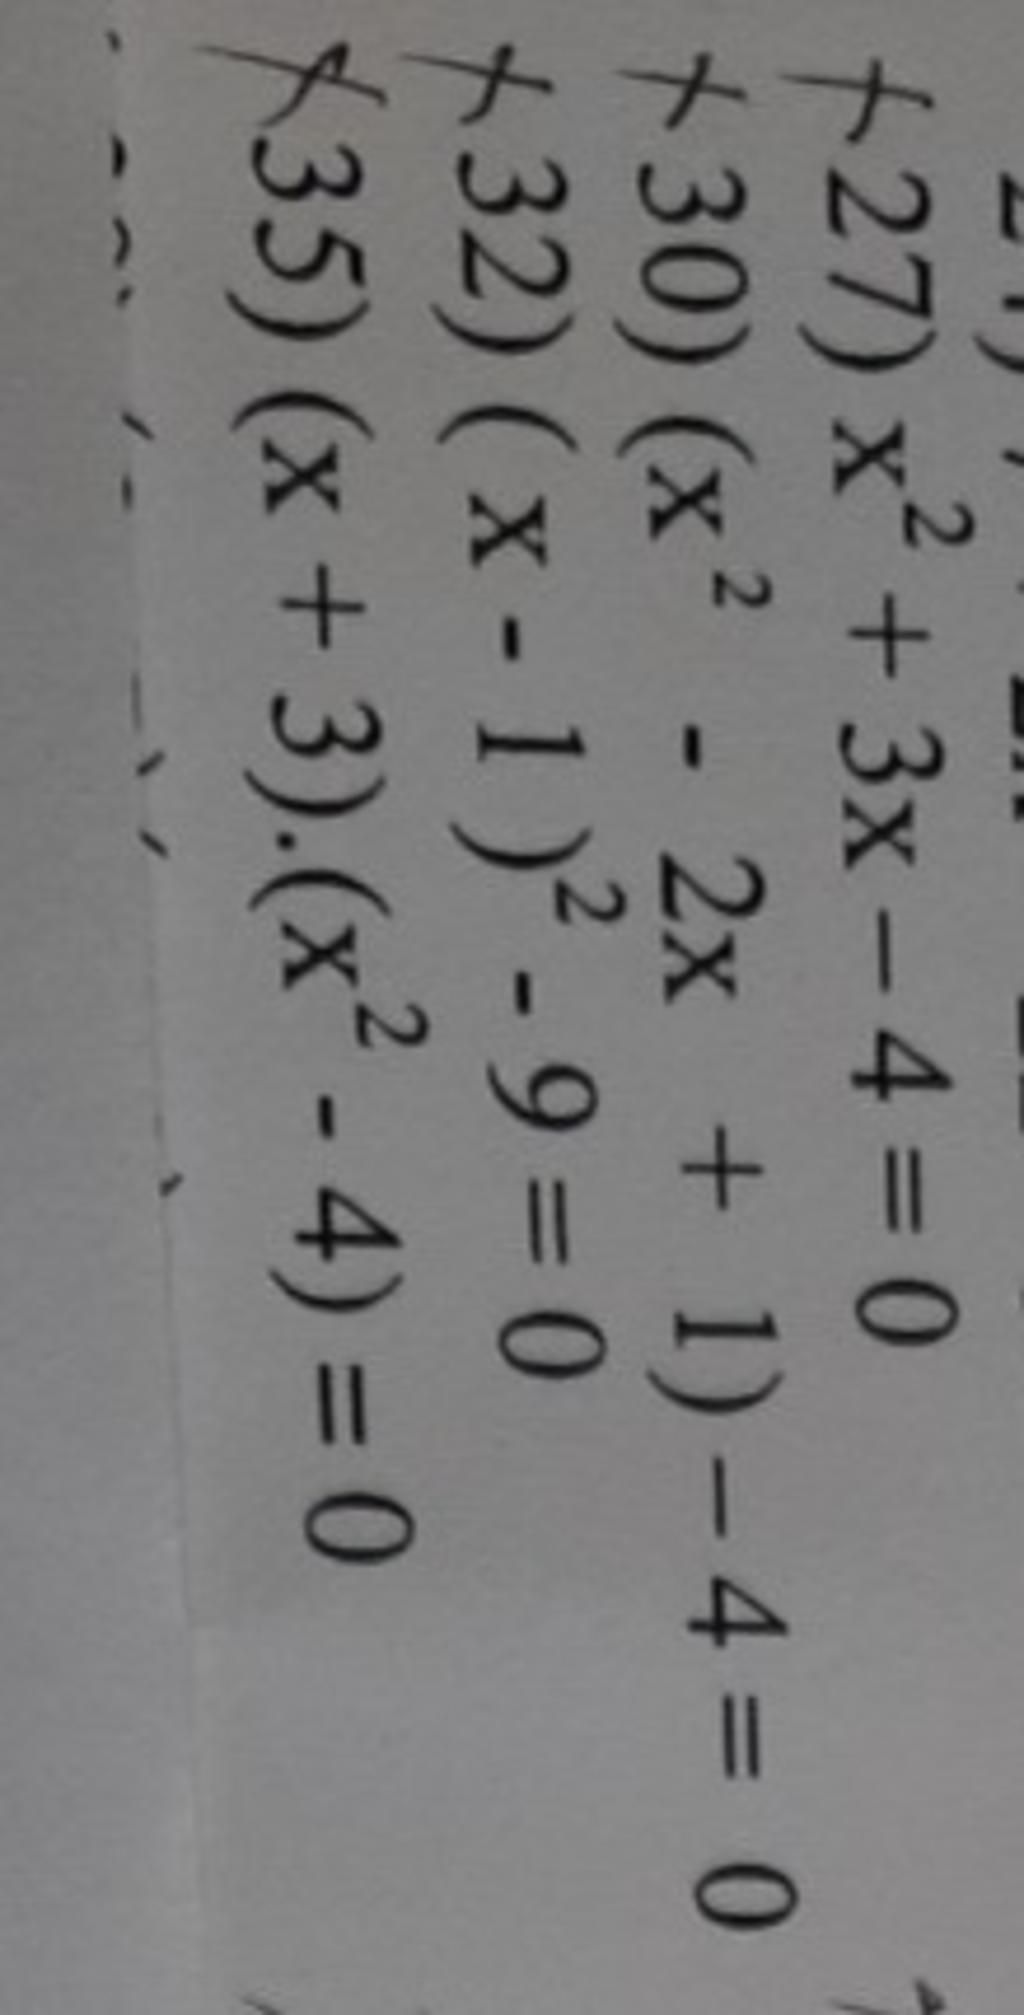 27) x² + 3x – 4 = 0
30) (x² - 2x + 1) – 4 = 0
32) ( x - 1 )² - 9 = 0
35) (x + 3).(x² - 4) = 0